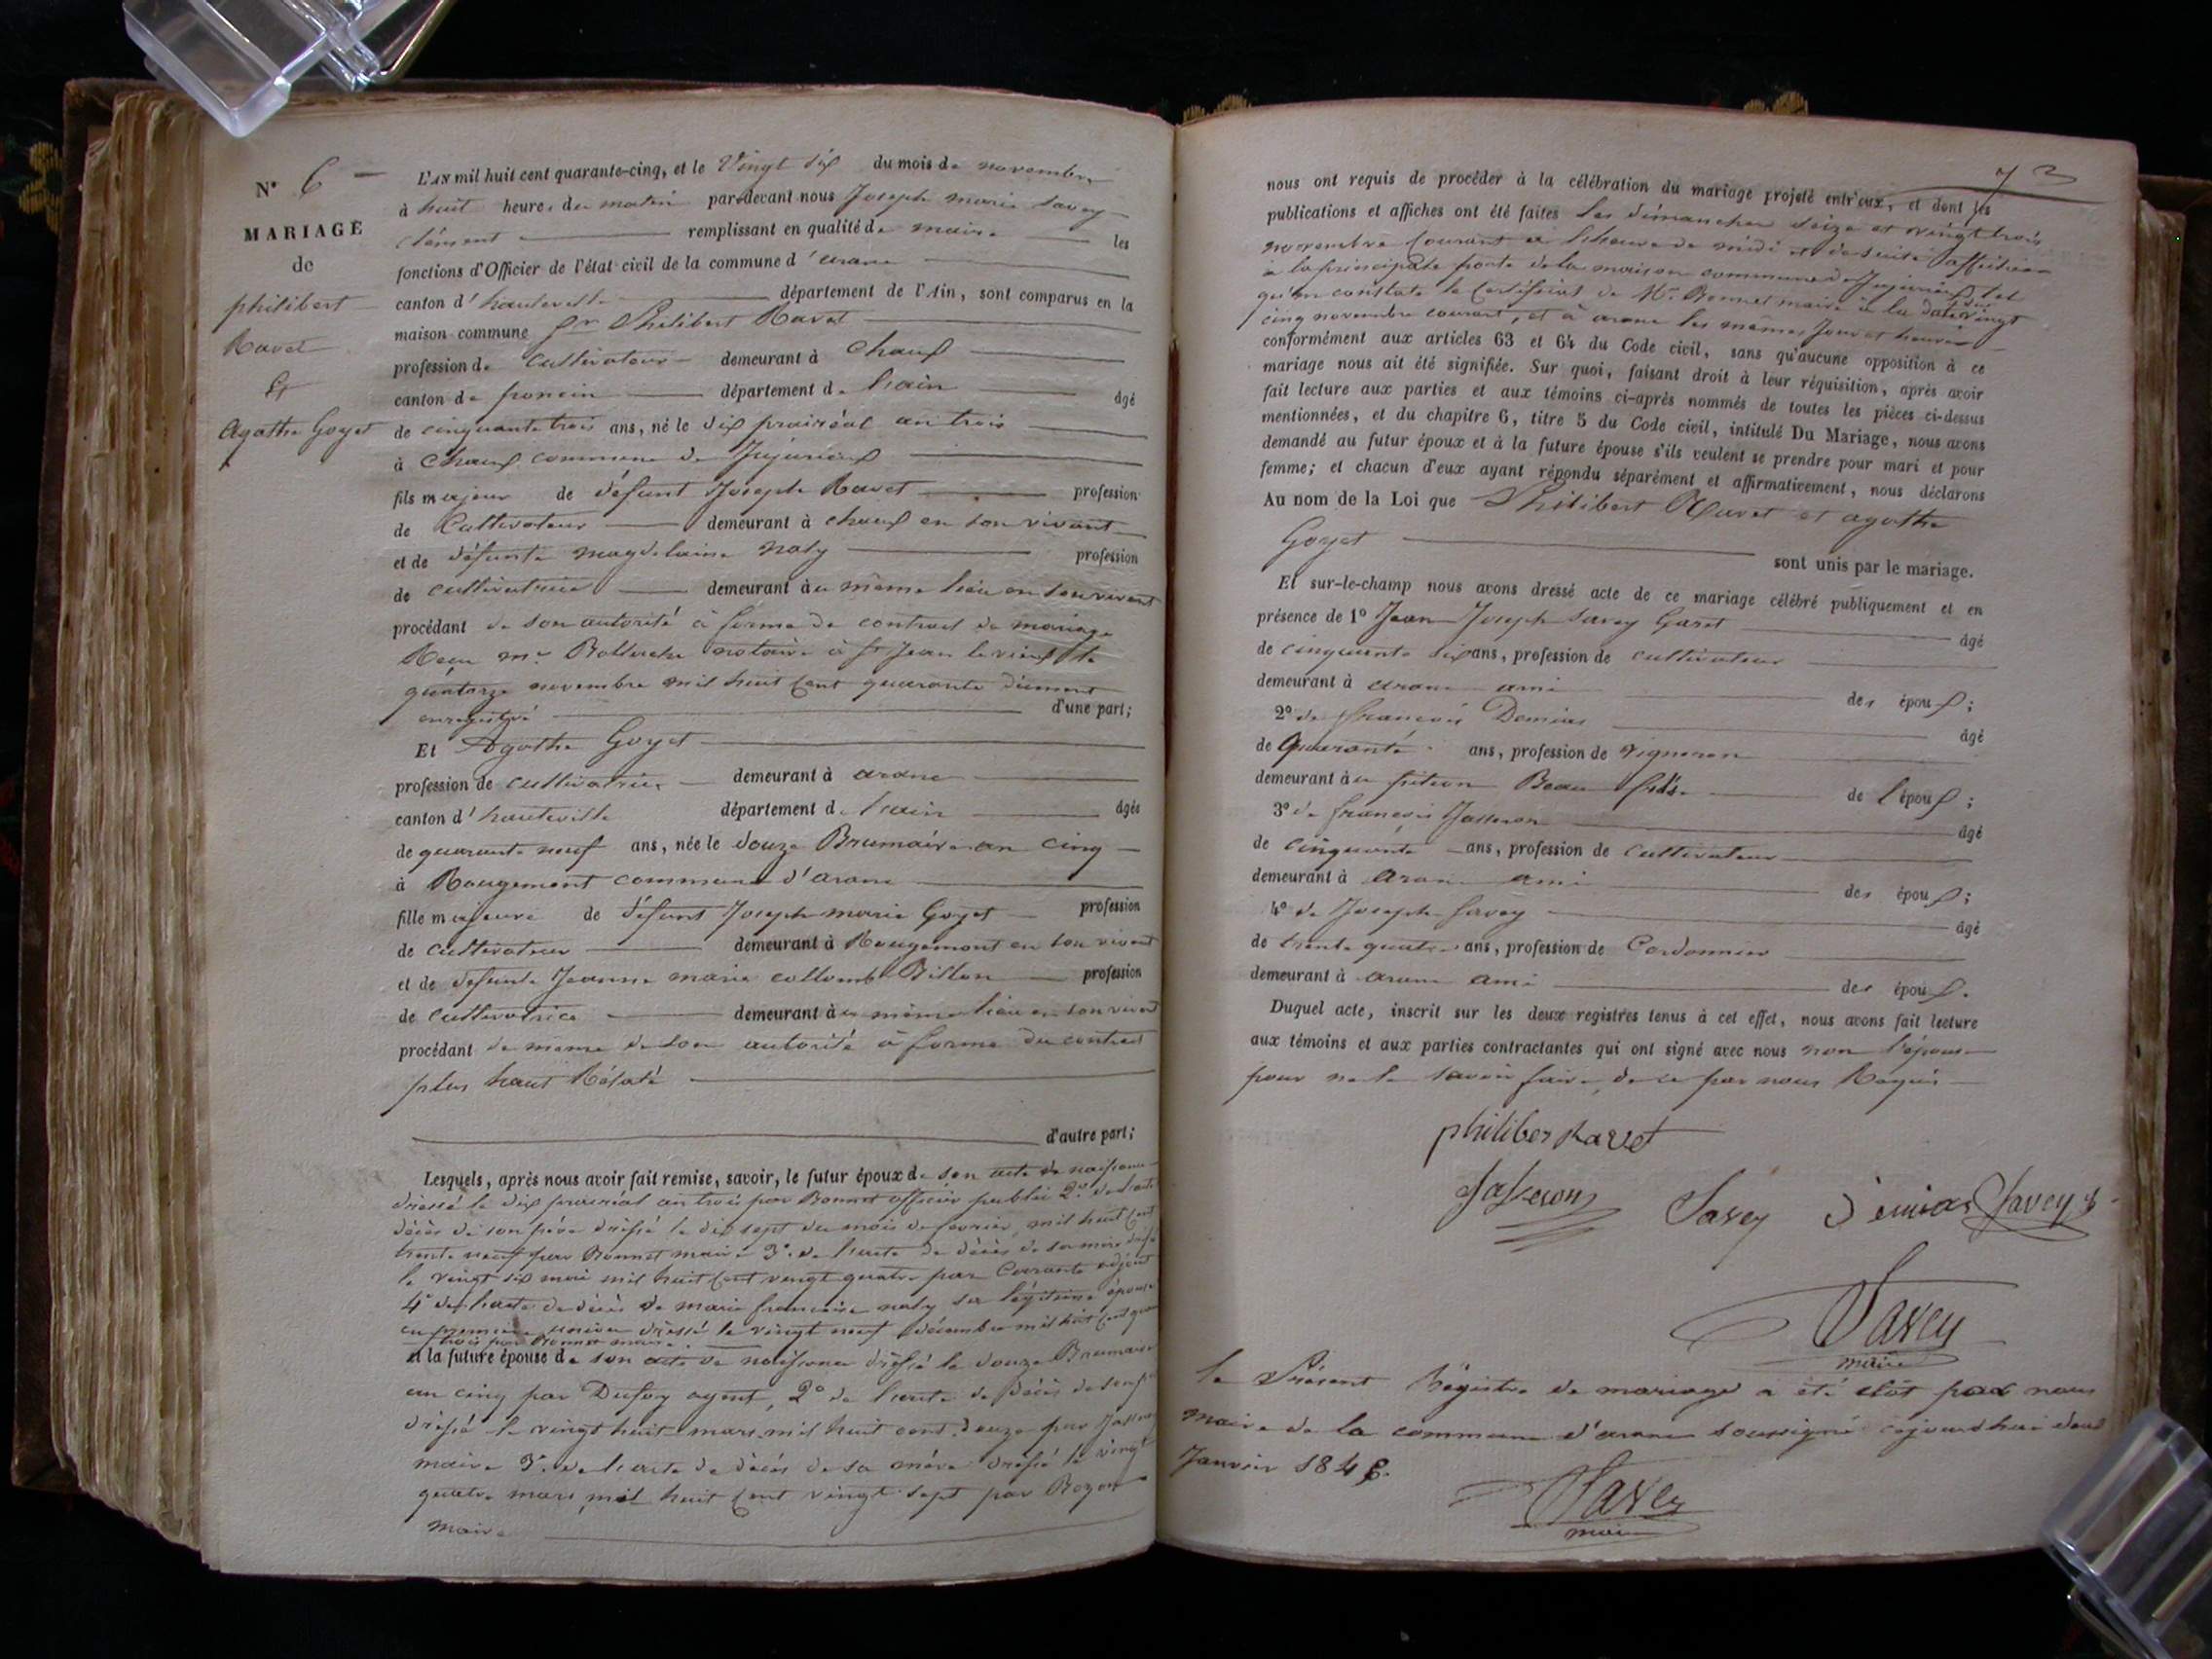 N° 6
MARIAGE
de
philibert
Ravet
Et
Agathe Goyet
L'AN mil huit cent quarante-cinq, et le Vingt six du mois de novembre
à huit heures du matin par-devant nous Joseph marie Savey
clément remplissant en qualité de maire les
fonctions d'Officier de l'état civil de la commune d'arane
canton d'hauteville département de l'Ain, sont comparus en la
maison commune Philibert Ravet
profession de cultivateur demeurant à Chaux
canton de poncin département de l'ain âgé
de cinquante trois ans, né le dix prairéal an trois
à Chaux commune de Jujurieux
fils majeur de défunt Joseph Ravet profession
de Cultivateur demeurant à chaux en son vivant
et de défunte magdelaine naly profession
de cultivatrice demeurant au même lieu en son vivant
procédant de son autorité à forme de contrat de mariage
Reçu notaire à St Jean le vieux le
novembre mil huit cent quarante dûment
enregistré d'une part;
Et Agathe Goyet
profession de cultivatrice demeurant à arane
canton d'hauteville département de l'ain âgée
de quarante neuf ans, née le douze Brumaire an cinq
à Rougemont commune d'arane
fille majeure de défunt Joseph marie Goyet profession
de cultivateur demeurant à Rougemont en son vivant
et de défunte Jeanne marie collomb Billon profession
de cultivatrice demeurant au même lieu en son vivant
procédant de même de son autorité à forme du contrat
plus haut Rélaté
d'autre part;
Lesquels, après nous avoir fait remise, savoir, le futur époux de son acte de naissance
dressé le dix prairéal an trois par Bonnet officier public 2° de l'acte
décès de son père dressé le dix sept du mois de février mil huit cent
trente neuf par Bonnet maire 3° de l'acte de décès de sa mère
le vingt six mai mil huit cent vingt quatre par adjoint
4° de l'acte de décès de marie françoise naly sa légitime épouse
en première union dressé le vingt neuf décembre mil huit cent
trois par Bonnet maire
et la future épouse de son acte de naissance dressé le douze Brumaire
an cinq par Dufoy agent, 2° de l'acte de décès de son
dressé le vingt huit mars mil huit cent douze par
maire 3° de l'acte de décès de sa mère dressé le vingt
quatre mars mil huit cent vingt sept par Bozon
maire
73
nous ont requis de procéder à la célébration du mariage projeté entr'eux, et dont les
publications et affiches ont été faites les dimanches seize et vingt trois
novembre courant à l'heure de midi et de suite affichées
à la principale porte de la maison commune de Jujurieux tel
qu'en constate le certificat de Mr Bonnet maire à la date du vingt
cinq novembre courant, et à arane les mêmes jour et heure
conformément aux articles 63 et 64 du Code civil, sans qu'aucune opposition à ce
mariage nous ait été signifiée. Sur quoi, faisant droit à leur réquisition, après avoir
fait lecture aux parties et aux témoins ci-après nommés de toutes les pièces ci-dessus
mentionnées, et du chapitre 6, titre 5 du Code civil, intitulé Du Mariage, nous avons
demandé au futur époux et à la future épouse s'ils veulent se prendre pour mari et pour
femme; et chacun d'eux ayant répondu séparément et affirmativement, nous déclarons
Au nom de la Loi que Philibert Ravet et agathe
Goyet sont unis par le mariage.
Et sur-le-champ nous avons dressé acte de ce mariage célébré publiquement et en
présence de 1° Jean Joseph Savey Garet âgé
de cinquante six ans, profession de cultivateur
demeurant à arane ami des époux;
2° de françois Demias âgé
de Quarante ans, profession de vigneron
demeurant au Beau fils de l'époux;
3° de françois Jasseron âgé
de cinquante ans, profession de cultivateur
demeurant à arane ami des époux;
4° de Joseph Savey âgé
de trente quatre ans, profession de Cordonnier
demeurant à arane ami des époux.
Duquel acte, inscrit sur les deux registres tenus à cet effet, nous avons fait lecture
aux témoins et aux parties contractantes qui ont signé avec nous non l'épouse
pour ne le savoir faire, de ce par nous Requis
philiber Ravet
Jasseron Savey Demias Savey
Savey
maire
le Présent Régistre de mariage a été clôt par nous
maire de la commune d'arane soussigné cejourd'hui deux
Janvier 1846.
Savey
maire